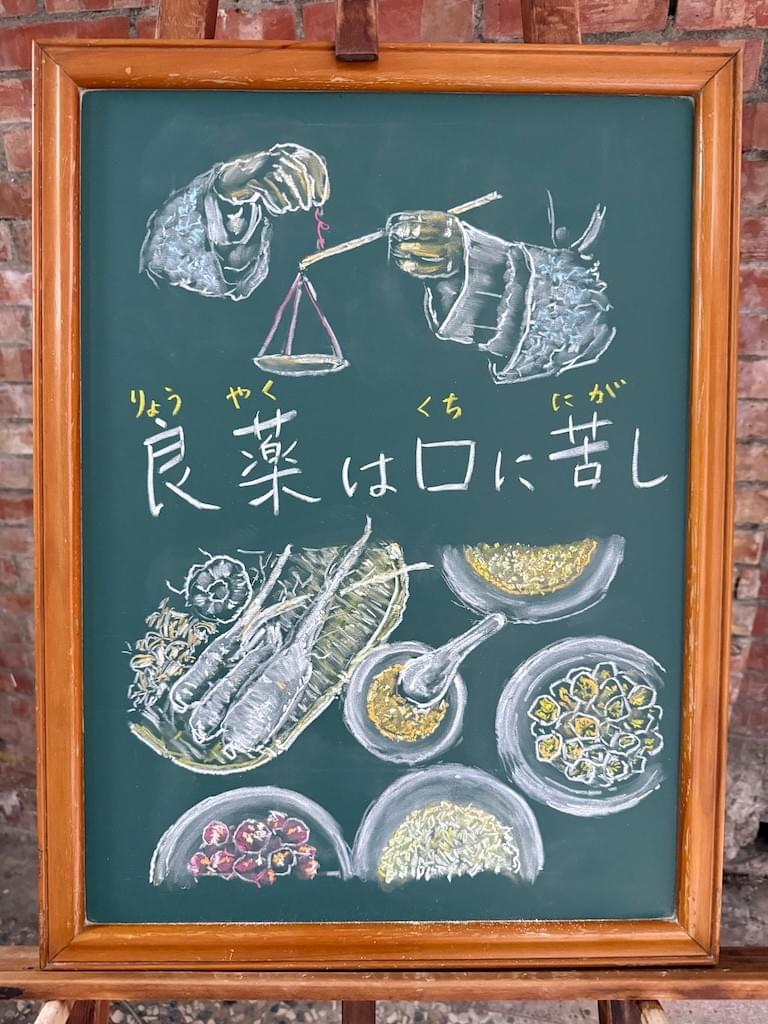 りょう やく くち にが
良薬は口に苦し